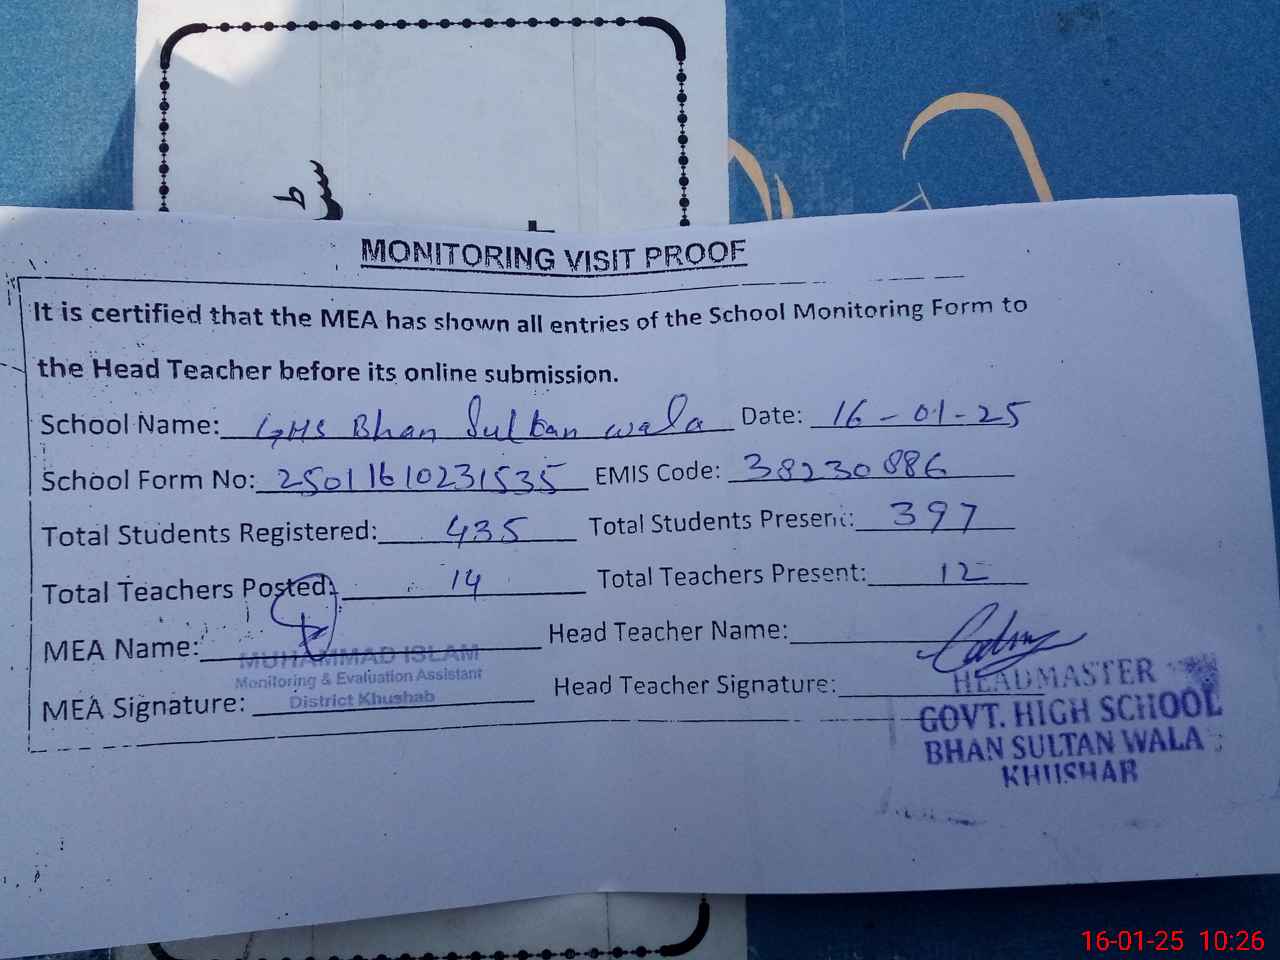 MONITORING VISIT PROOF
It is certified that the MEA has shown all entries of the School Monitoring Form to
the Head Teacher before its online submission.
School Name: GHS Bhan Sultan wala Date: 16-01-25
School Form No: 25011610231535 EMIS Code: 38230886
Total Students Registered: 435 Total Students Present: 397
Total Teachers Posted: 14 Total Teachers Present: 12
MEA Name: Head Teacher Name:
MUHAMMAD ISLAM
Monitoring & Evaluation Assistant
District Khushab
MEA Signature: Head Teacher Signature:
HEADMASTER
GOVT. HIGH SCHOOL
BHAN SULTAN WALA
KHUSHAB
16-01-25 10:26